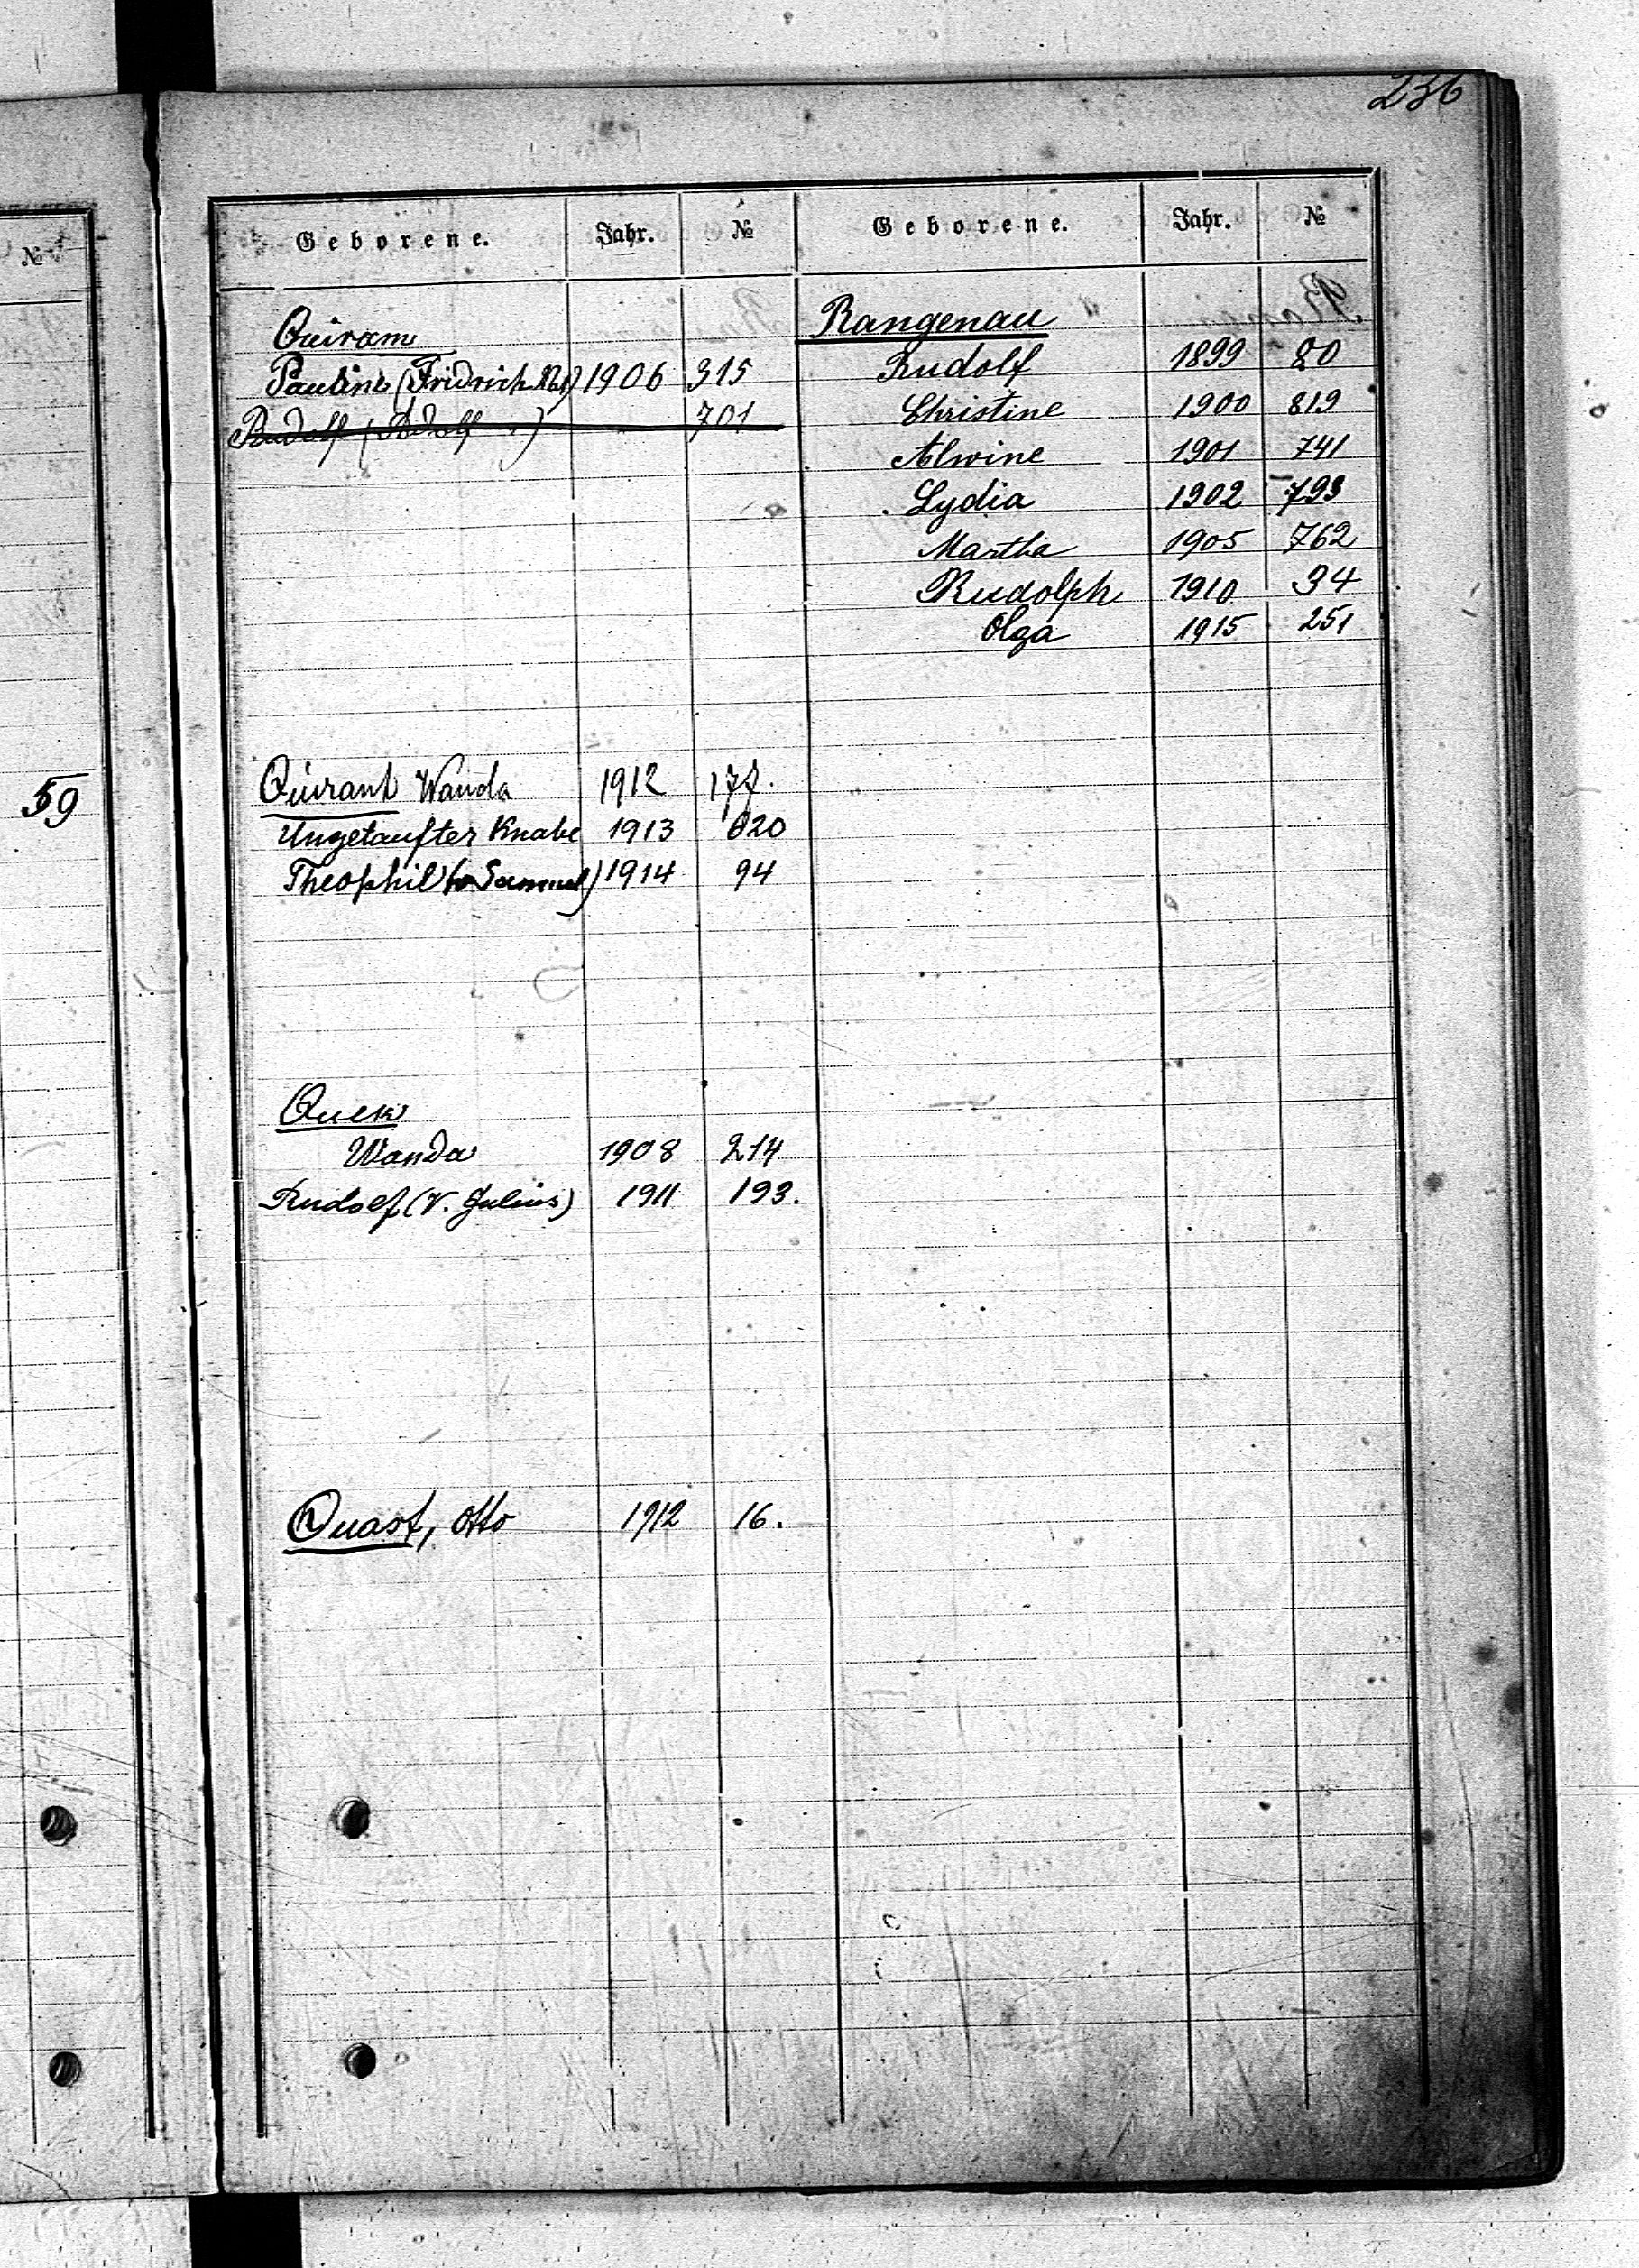 236
№
59
Geborene. Jahr. №
Quiram
Pauline (Fridrich 1906 315
Rudolf (Adolf ") " 701
Quirant Wanda 1912 177.
Ungetaufter Knabe 1913 620
Theophil Samuel) 1914 94
Quek
Wanda 1908 214
Rudolf (V. Julius) 1911 193.
Quast, Otto 1912 16.
Geborene. Jahr. №
Rangenau
Rudolf 1899 80
Christine 1900 819
Alwine 1901 741
Lydia 1902 793
Martha 1905 762
Rudolph 1910 34
Olga 1915 251